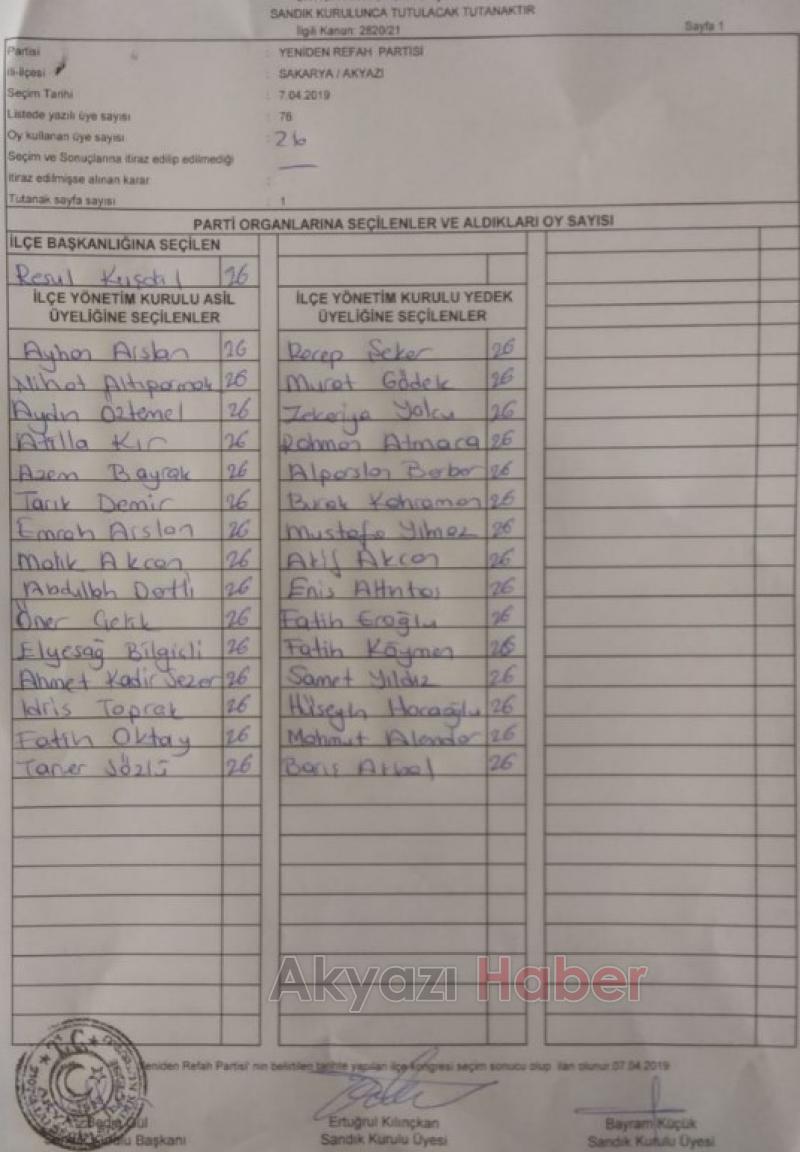 SANDIK KURULUNCA TUTULACAK TUTANAKTIR
İlgili Kanun: 2820/21
Sayfa 1
Partisi : YENİDEN REFAH PARTİSİ
ili-ilçesi : SAKARYA / AKYAZI
Seçim Tarihi : 7.04.2019
Listede yazılı üye sayısı : 76
Oy kullanan üye sayısı : 26
Seçim ve Sonuçlarına itiraz edilip edilmediği —
itiraz edilmişse alınan karar :
Tutanak sayfa sayısı : 1
PARTİ ORGANLARINA SEÇİLENLER VE ALDIKLARI OY SAYISI
İLÇE BAŞKANLIĞINA SEÇİLEN
Resul Kuşdil 26
İLÇE YÖNETİM KURULU ASİL
ÜYELİĞİNE SEÇİLENLER
Ayhan Arslan 26
Nihat Altıparmak 26
Aydın Öztemel 26
Atilla Kır 26
Azem Bayrak 26
Tarık Demir 26
Emrah Arslan 26
Malik Akcan 26
Abdullah Dertli 26
Öner Çelik 26
Elyesağ Bilgiçli 26
Ahmet Kadir Sezer 26
İdris Toprak 26
Fatih Oktay 26
Taner Sözlü 26
İLÇE YÖNETİM KURULU YEDEK
ÜYELİĞİNE SEÇİLENLER
Recep Şeker 26
Murat Gödek 26
Zekeriya Yolcu 26
Rahman Atmaca 26
Alparslan Berber 26
Burak Kahraman 26
Mustafa Yılmaz 26
Akif Akcan 26
Enis Altıntaş 26
Fatih Eroğlu 26
Fatih Köymen 26
Samet Yıldız 26
Hüseyin Hocaoğlu 26
Mahmut Alendar 26
Barış Akbal 26
Akyazı Haber
Yeniden Refah Partisi' nin belirtilen tarihte yapılan ilçe kongresi seçim sonucu olup ilan olunur.07.04.2019
Gül
Kurulu Başkanı
Ertuğrul Kılınçkan
Sandık Kurulu Üyesi
Bayram Küçük
Sandık Kurulu Üyesi